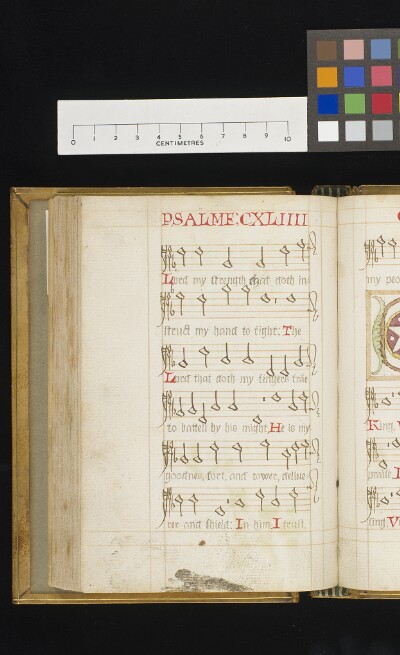 0 1 2 3 4 5 6 7 8 9 10
CENTIMETRES
PSALME: CXLIIII
Lord my strength that doth in
struct my hand to fight: The
Lord that doth my fingers
to battell by his might. He is my
goodnes, fort, and tower, delive
rer and shield: In him I trust,
my peo
King,
praise
sing